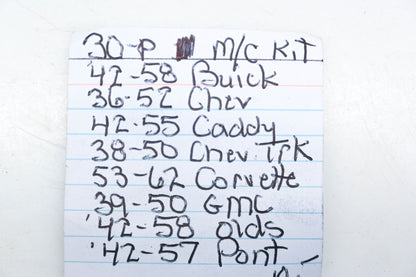 30-P M/C Kit
'42-58 Buick
36-52 Chev
42-55 Caddy
38-50 Chev. Trk
53-62 Corvette
39-50 GMC
'42-58 olds
'42-57 Pont